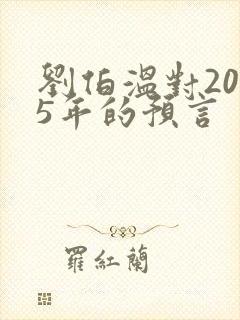 劉伯溫對20
5年的預言
羅紅蘭